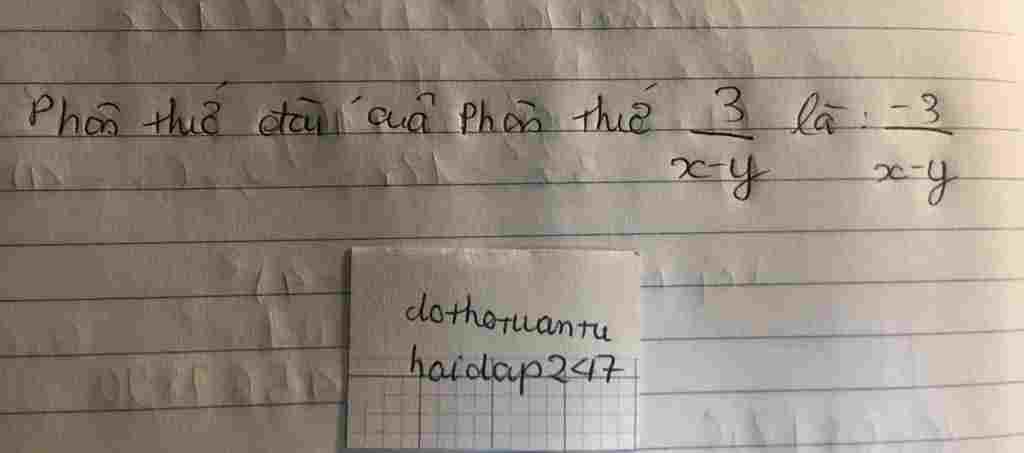 Phân thức đối của phân thức 3/(x-y) là: -3/(x-y)
dothotuantu
hoidap247